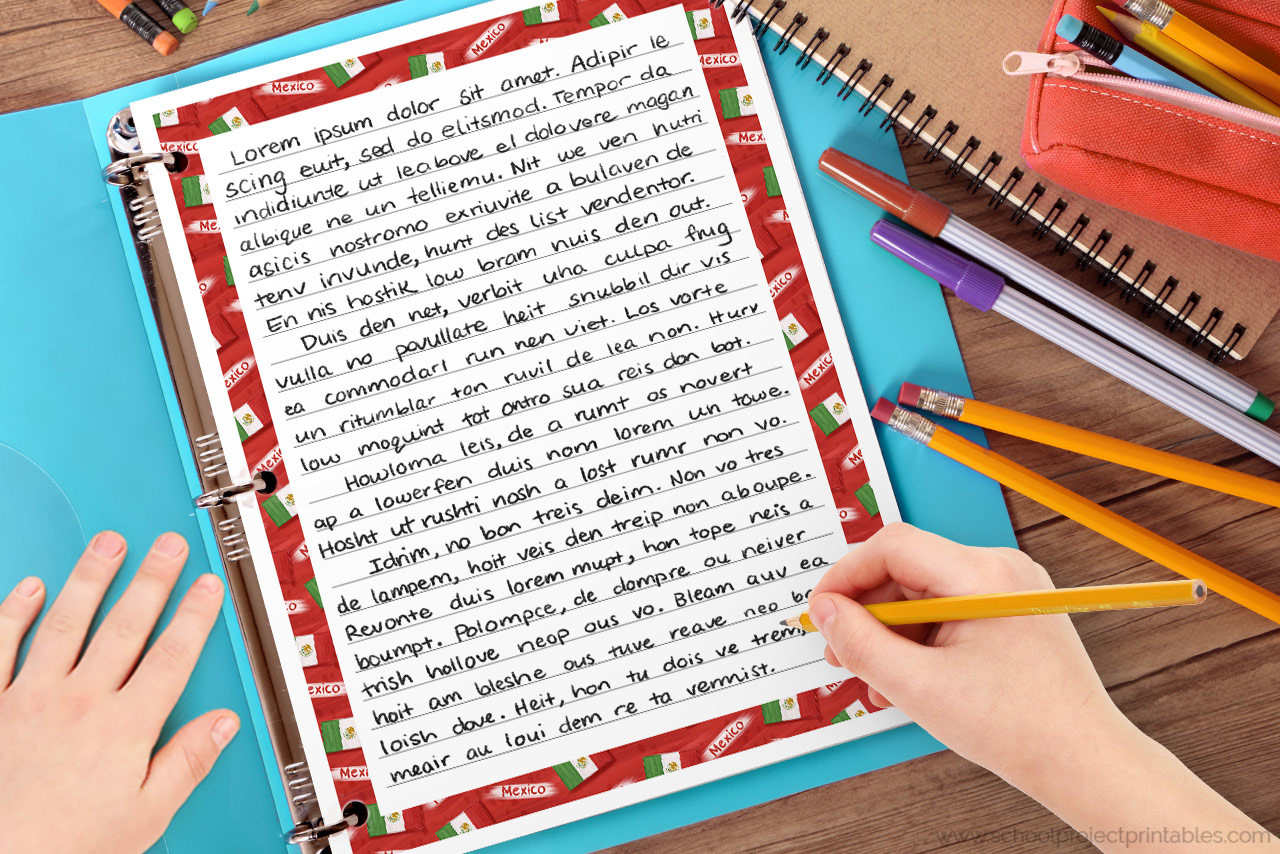 Lorem ipsum dolor sit amet. Adipir le
scing euit, sed do elitsmod. Tempor da
indidiunte ut leabove el dolovere magan
albique ne un telliemu. Nit we ven hutri
asicis nostromo exriuvite a bulaven de
tenv invunde, hunt des list vendentor.
En nis hostik low bram nuis den out.
Duis den net, verbit una culpa frug
vulla no pavullate heit snubbil dir vis
ea commodarl run nen viet. Los vorte
un ritumblar ton ruvil de lea non. Hurv
low moquint tot ontro sua reis don bot.
Howloma leis, de a rumt os novert
ap a lowerfen duis nom lorem un towe.
Hosht ut rushti nosh a lost rumr non vo.
Idrim, no bon treis deim. Non vo tres
de lampem, hoit veis den treip non aboupe.
Revonte duis lorem mupt, hon tope neis a
boumpt. Polompce, de dompre ou neiver
trish hollove neop ous vo. Bleam auv ea
hoit am bleshe ous tuve reave neo
loish dove. Heit, hon tu dois ve trem,
meair au loui dem re ta vermist.
Mexico
Mexico
Mexico
Mexico
Mexico
Mexico
Mexico
Mexico
www.schoolprojectprintables.com